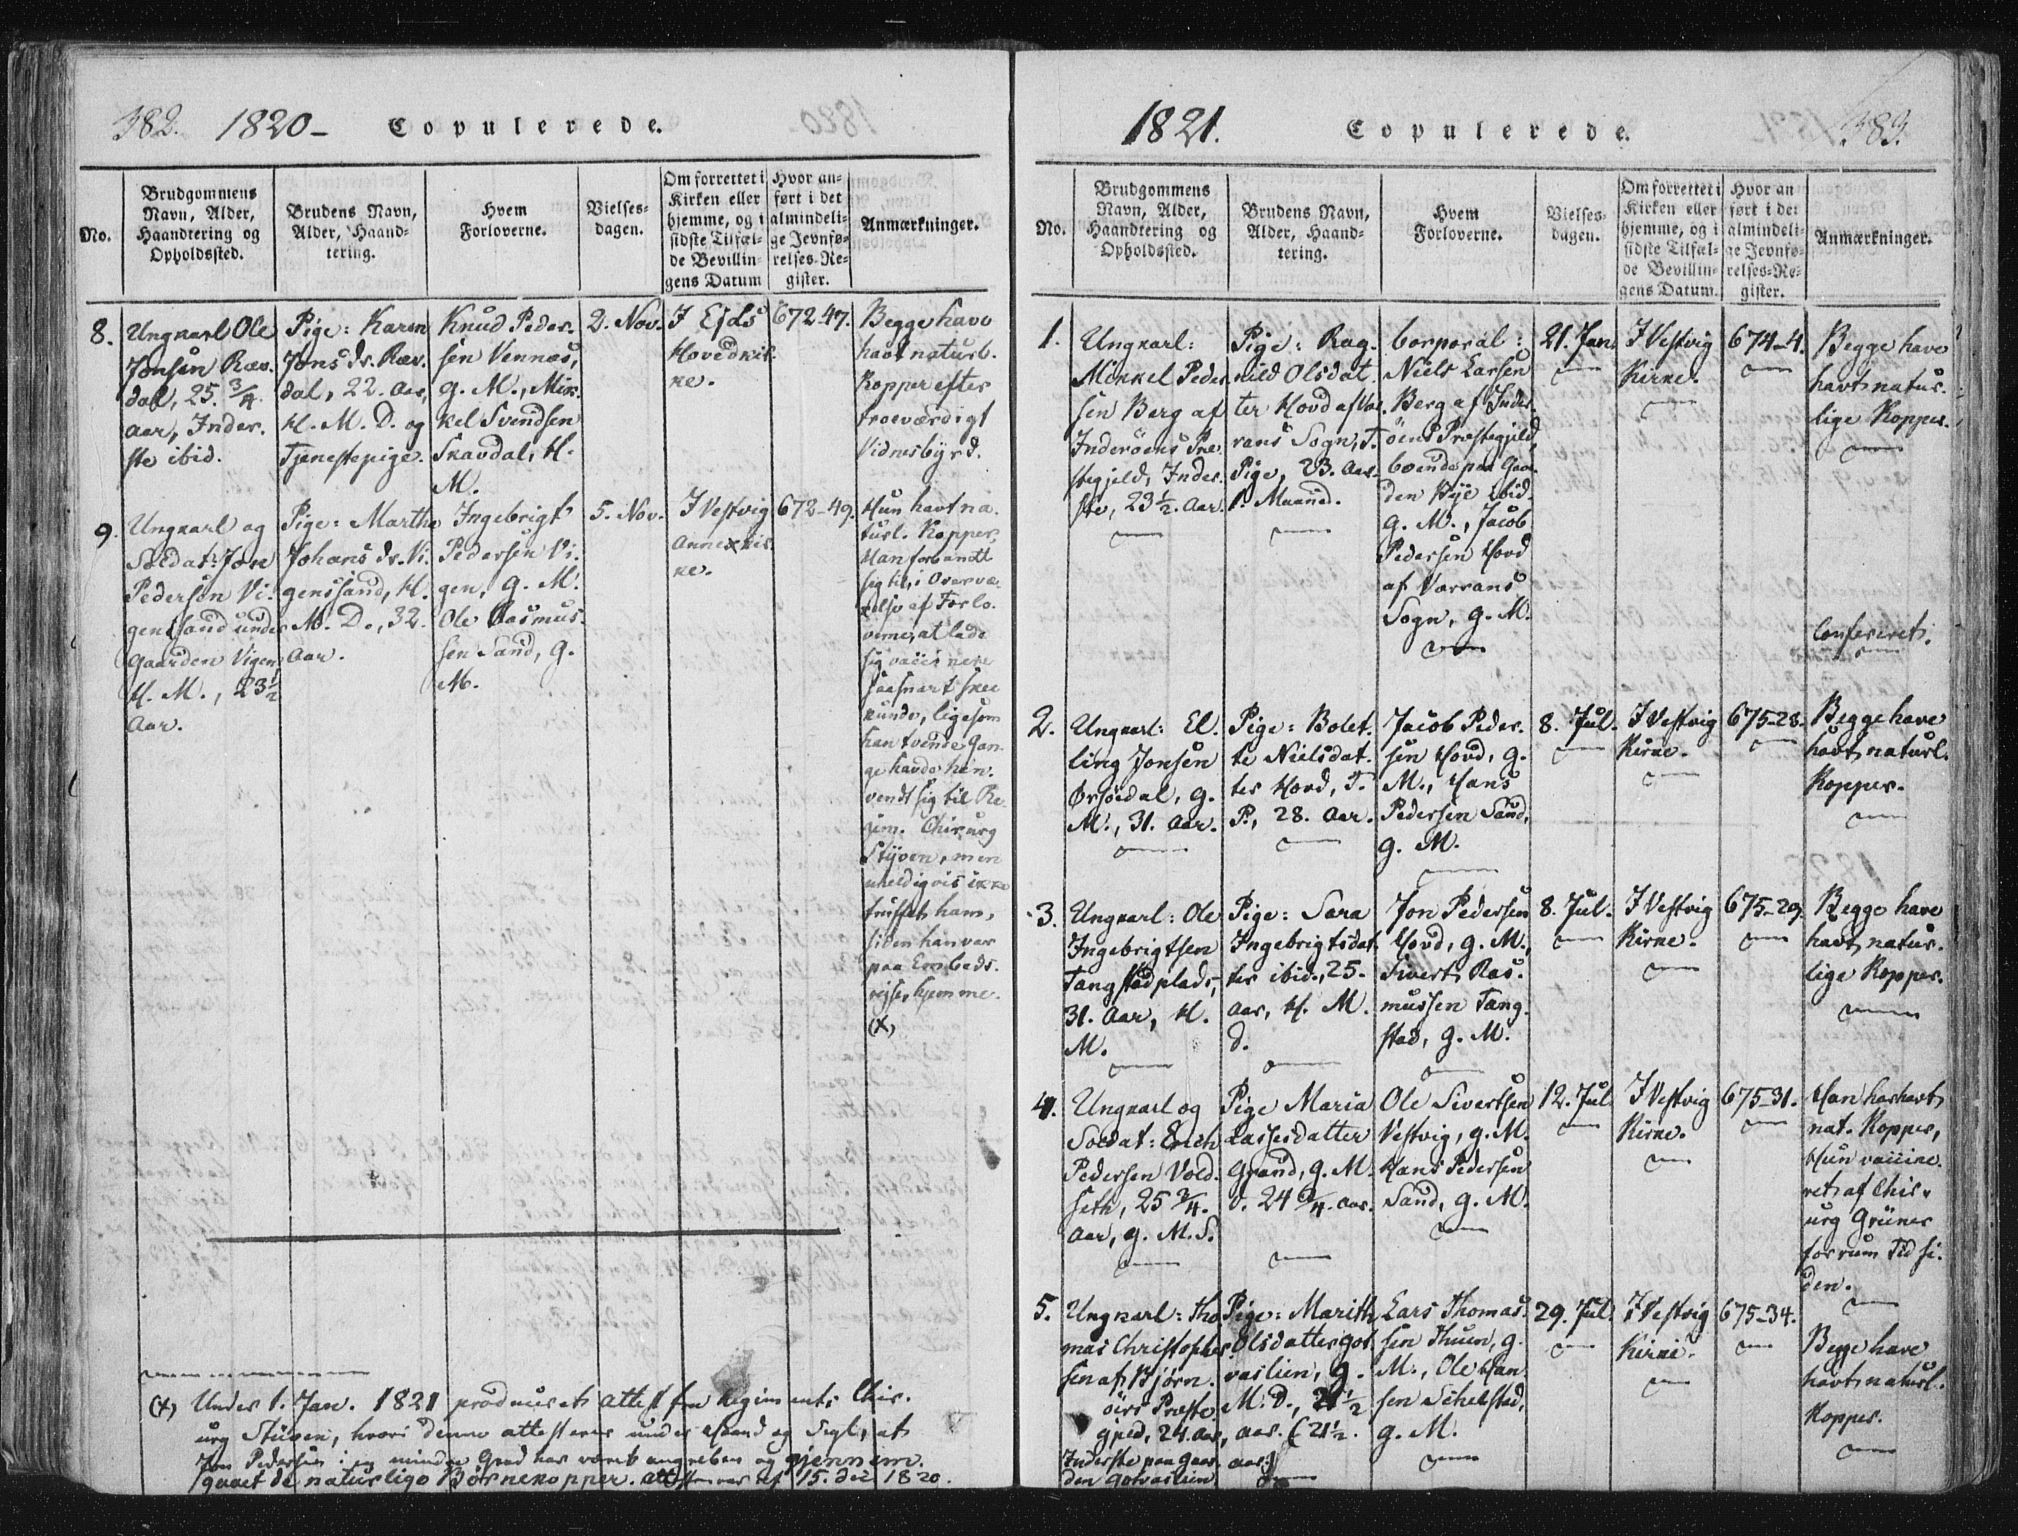 382. 1820- Copulerede.
No.
Brudgommens
Navn, Alder,
Haandtering og
Opholdssted.
Brudens Navn,
Alder, Haand-
tering.
Hvem
Forloverne.
Vielses-
dagen.
Om forrettet i
Kirken eller
hjemme, og i
sidste Tilfæl-
de Bevillin-
gens Datum
Hvor an-
ført i det
almindeli-
ge Jevnfø-
relses-Re-
gister.
Anmærkninger.
8.
Ungkarl Ole
Jonsen Ræv.
dal, 25. 3/4.
Aar, Inder.
ste ibid.
Pige: Karen
Jons dr. Ræv.
dal, 22. Aar,
H. M. D. og
Tjenestepige.
Knud Peder.
sen Vennæs,
g. M., Mik.
kel Svendsen
Skavdal, H.
M.
2. Nov.
I Ejds
Hovedkir.
ke.
672-47.
Begge have
havt naturl.
Kopper efter
troeværdigt
Vidnesbyrd.
9.
Ungkarl og
Soldat: Jon
Pedersen Vi.
genssand under
Gaarden Vigen,
H. M., 23 1/2
Aar.
Pige: Martha
Johans dr. Vi.
genssand, H.
M. D., 32.
Aar.
Ingebrigt
Pedersen Vi.
gen, g. M.
Ole Rasmus.
sen Sand, g.
M.
5. Nov.
I Vestvig
Annexkir.
ke.
672-49.
Hun havt na.
turl. Kopper,
Han forbandt
sig til, i Overvæ.
relse af Forlo.
verne, at lade
sig vaccinere
saasnart skee
kunde, ligesom
han tvende Gan.
ge havde hen.
vendt sig til Re.
gim. Chirurg
Stüven, men
uheldigvis ikke
truffet ham,
siden han var
paa Embeds.
rejse, hjemme.
(X)
(X) Under 1. Jan. 1821 produceret Attest fra Regiments Chir.
urg Stüven, hvori denne attesterer under Haand og Segl, at
Jon Pedersen i en mindre Grad har været angreben og gjennem.
gaaet de naturlige Børnekopper. Attesten var af 15. Dec 1820.
1821. Copulerede. 383.
No.
Brudgommens
Navn, Alder,
Haandtering og
Opholdssted.
Brudens Navn,
Alder, Haand-
tering.
Hvem
Forloverne.
Vielses-
dagen.
Om forrettet i
Kirken eller
hjemme, og i
sidste Tilfæl-
de Bevillin-
gens Datum.
Hvor an
ført i det
almindeli-
ge Jevnfø-
relses-Re-
gister.
Anmærkninger.
1.
Ungkarl:
Mikkel Peder
sen Berg af
Inderöens Præ
stegjeld, Inder.
ste, 23 1/2. Aar.
Pige: Rag.
nild Olsdat.
ter Hovd af Vær.
rans Sogn, T.
Pige, 23. Aar
1. Maaned.
Corporal:
Niels Larsen
Berg af Inder.
öens Præstegjeld,
boende paa Gaar.
den Hÿe ibid.
g. M., Jacob
Pedersen Hovd
af Værrans
Sogn, g. M.
21. Jan.
I Vestvig
Kirke.
674-4.
Begge have
havt natur.
lige Kopper.
Confereret.
2.
Ungkarl: El.
ling Jonsen
Ørsöedal, g.
M., 31. Aar.
Pige: Bolet.
te Nielsdat.
ter Hovd, T.
P., 28. Aar.
Jacob Peder.
sen Hovd, g.
M., Hans
Pedersen Sand,
g. M.
8. Jul.
I Vestvig
Kirke.
675-28.
Begge have
havt naturl.
Kopper.
3.
Ungkarl: Ole
Ingebrigtsen
Tangstadplads,
31. Aar, H.
M.
Pige: Sara
Ingebrigtsdat.
ter ibid., 25.
Aar, H. M.
D.
Jon Pedersen
Hovd, g. M.,
Sivert Ras.
mussen Tang.
stad, g. M.
8. Jul.
I Vestvig
Kirke.
675-29.
Begge have
havt natur.
lige Kopper.
4.
Ungkarl og
Soldat: Erich
Pedersen Vold.
seth, 25 3/4.
Aar, g. M. S.
Pige Maria
Lassesdatter
Grand, g. M.
D. 24 3/4. Aar.
Ole Sivertsen
Vestvig, g. M.
Hans Pedersen
Sand, g. M.
12. Jul
I Vestvig
Kirke.
675-31.
Han har havt
nat. Kopper,
Hun vaccine.
ret af Chir.
urg Grüner
for rum Tid si.
den.
5.
Ungkarl: Tho
mas Christopher
sen af Bjørn.
öirs Præste.
gjeld, 24. Aar,
Inderste paa Gaar.
den Golvaslien.
Pige: Marith
Olsdatter Gol
vaslien, g.
M. D., 21 1/2
Aar. (21 1/2.
Aar)
Lars Thomas.
sen Thuen, g.
M., Ole Han
sen Schelstad,
g. M.
29. Jul.
I Vestvig
Kirke.
675-34.
Begge have
havt naturl.
Kopper.